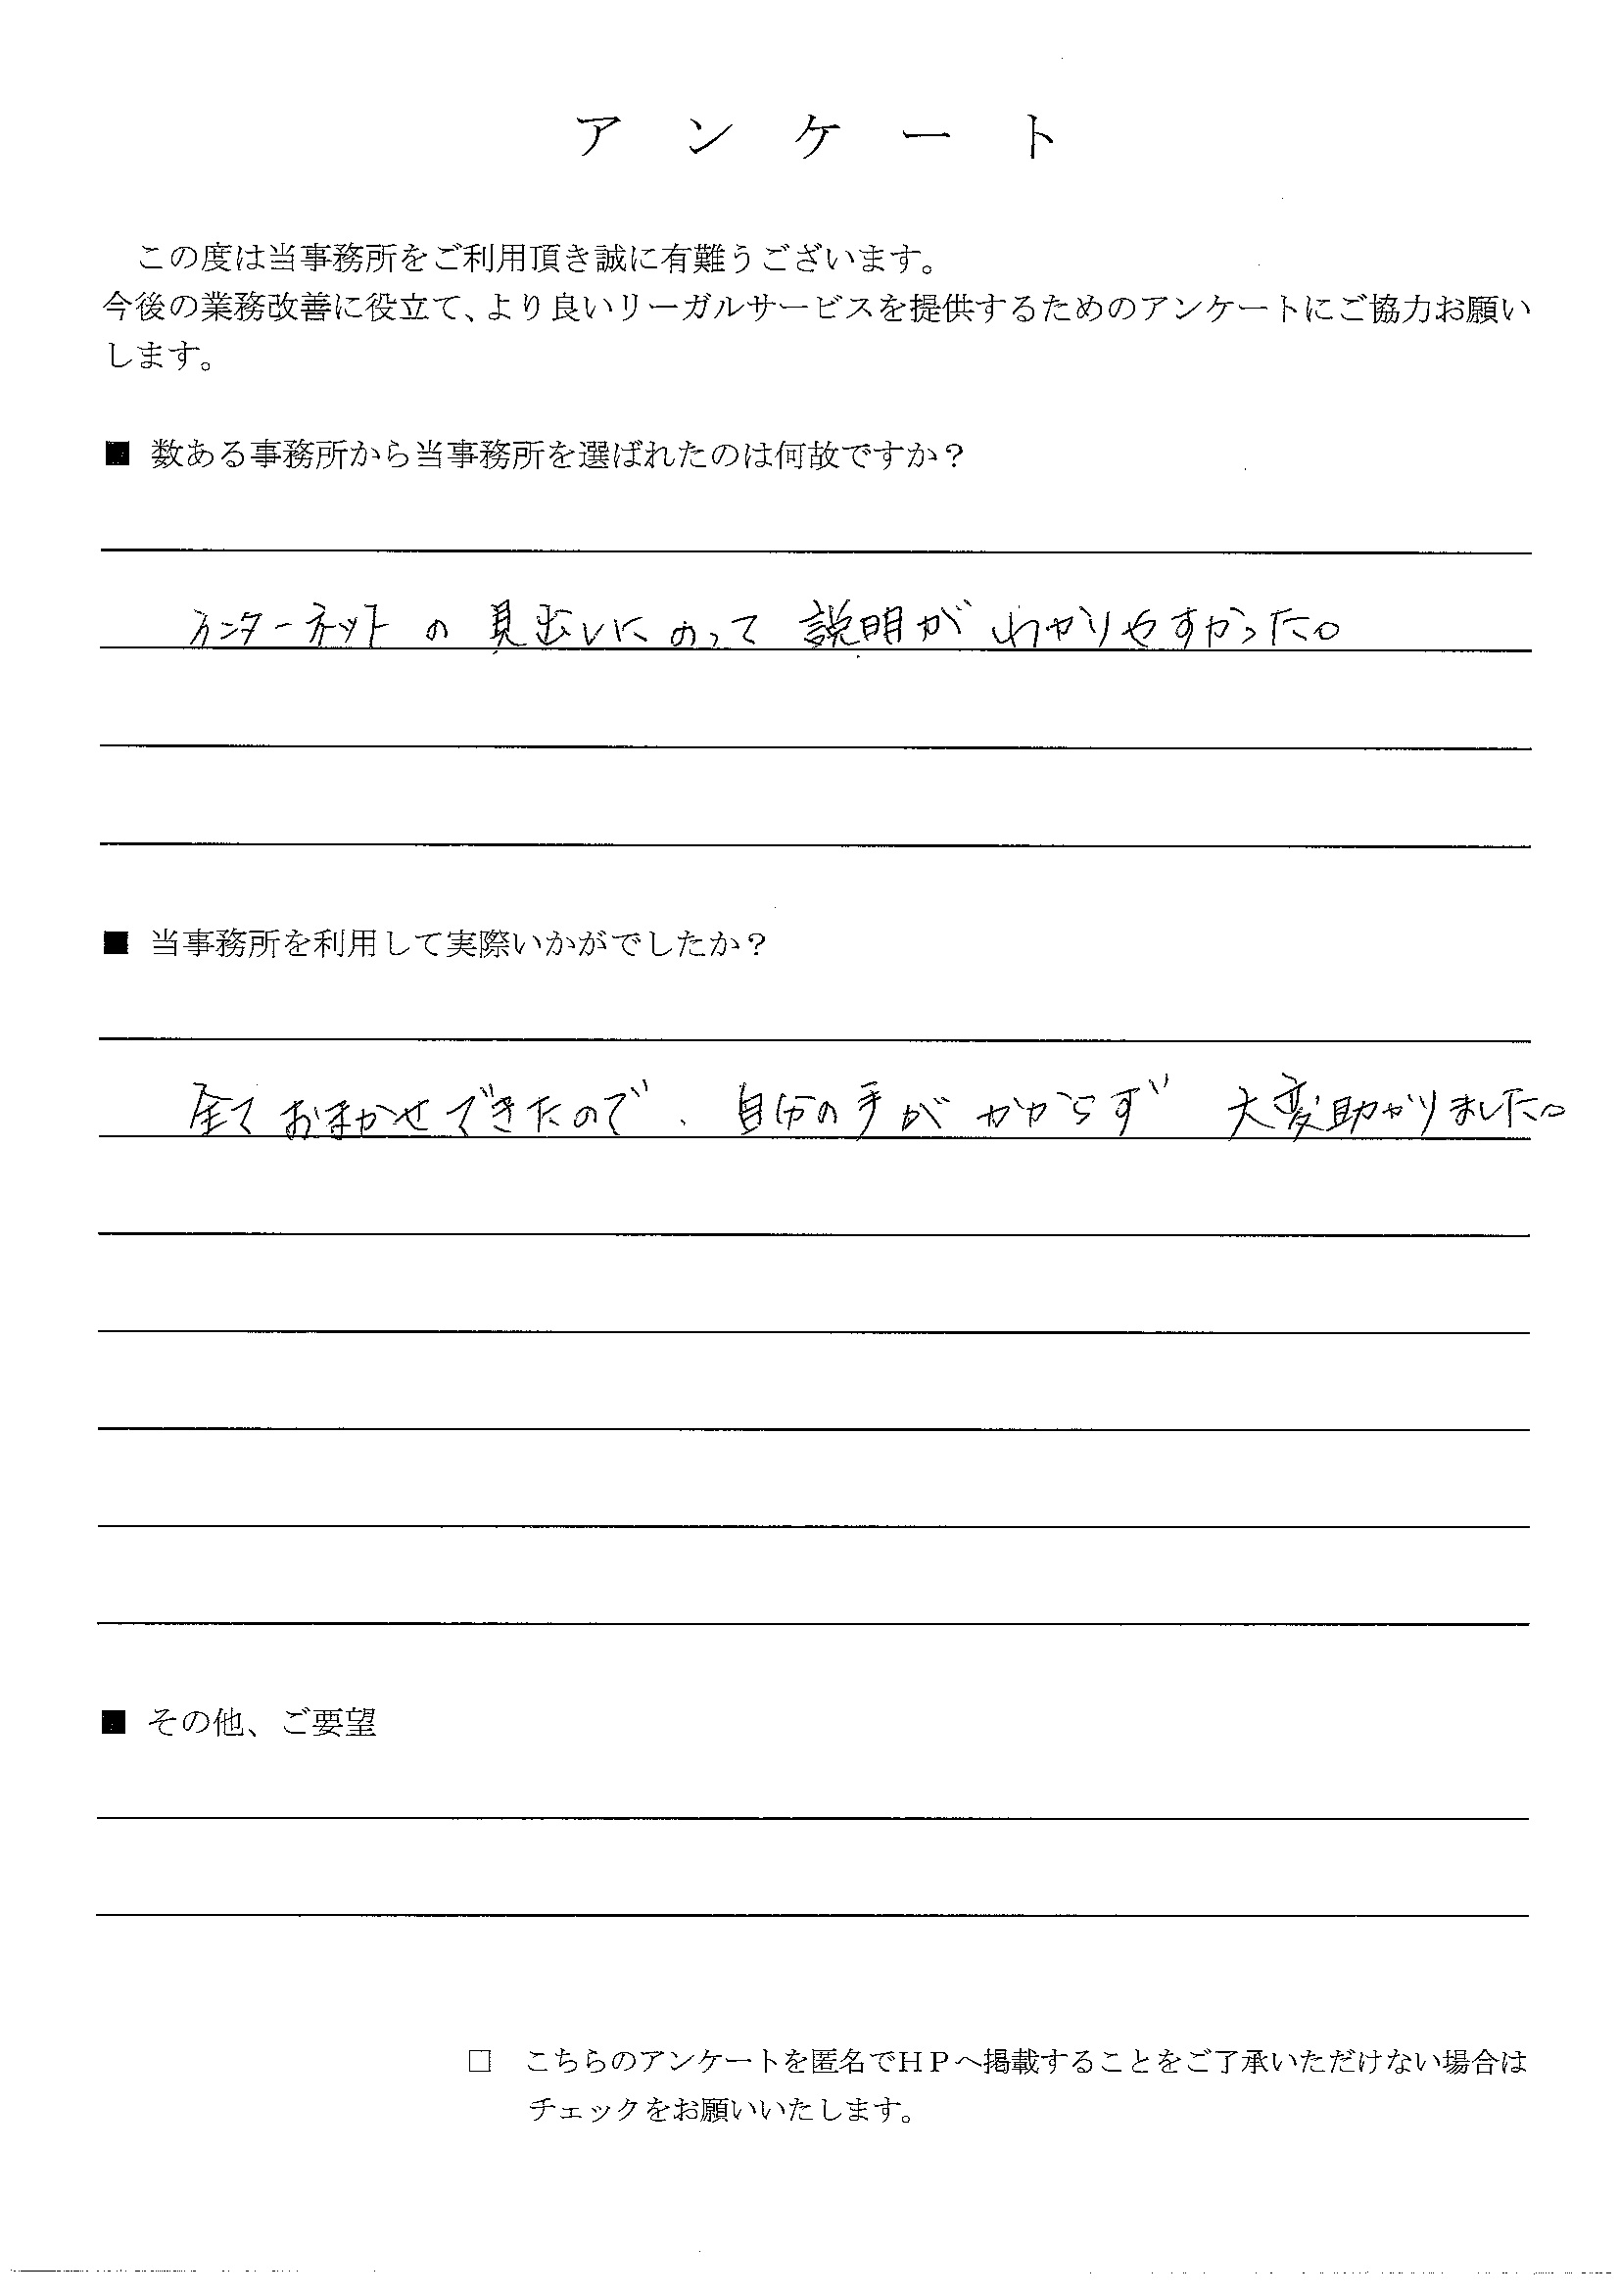 アンケート
この度は当事務所をご利用頂き誠に有難うございます。
今後の業務改善に役立て、より良いリーガルサービスを提供するためのアンケートにご協力お願い
します。
■ 数ある事務所から当事務所を選ばれたのは何故ですか？
インターネットの 見出しにのって 説明が わかりやすかった。
■ 当事務所を利用して実際いかがでしたか？
全ておまかせできたので、自分の手が かからず 大変助かりました。
■ その他、ご要望
□ こちらのアンケートを匿名でＨＰへ掲載することをご了承いただけない場合は
チェックをお願いいたします。